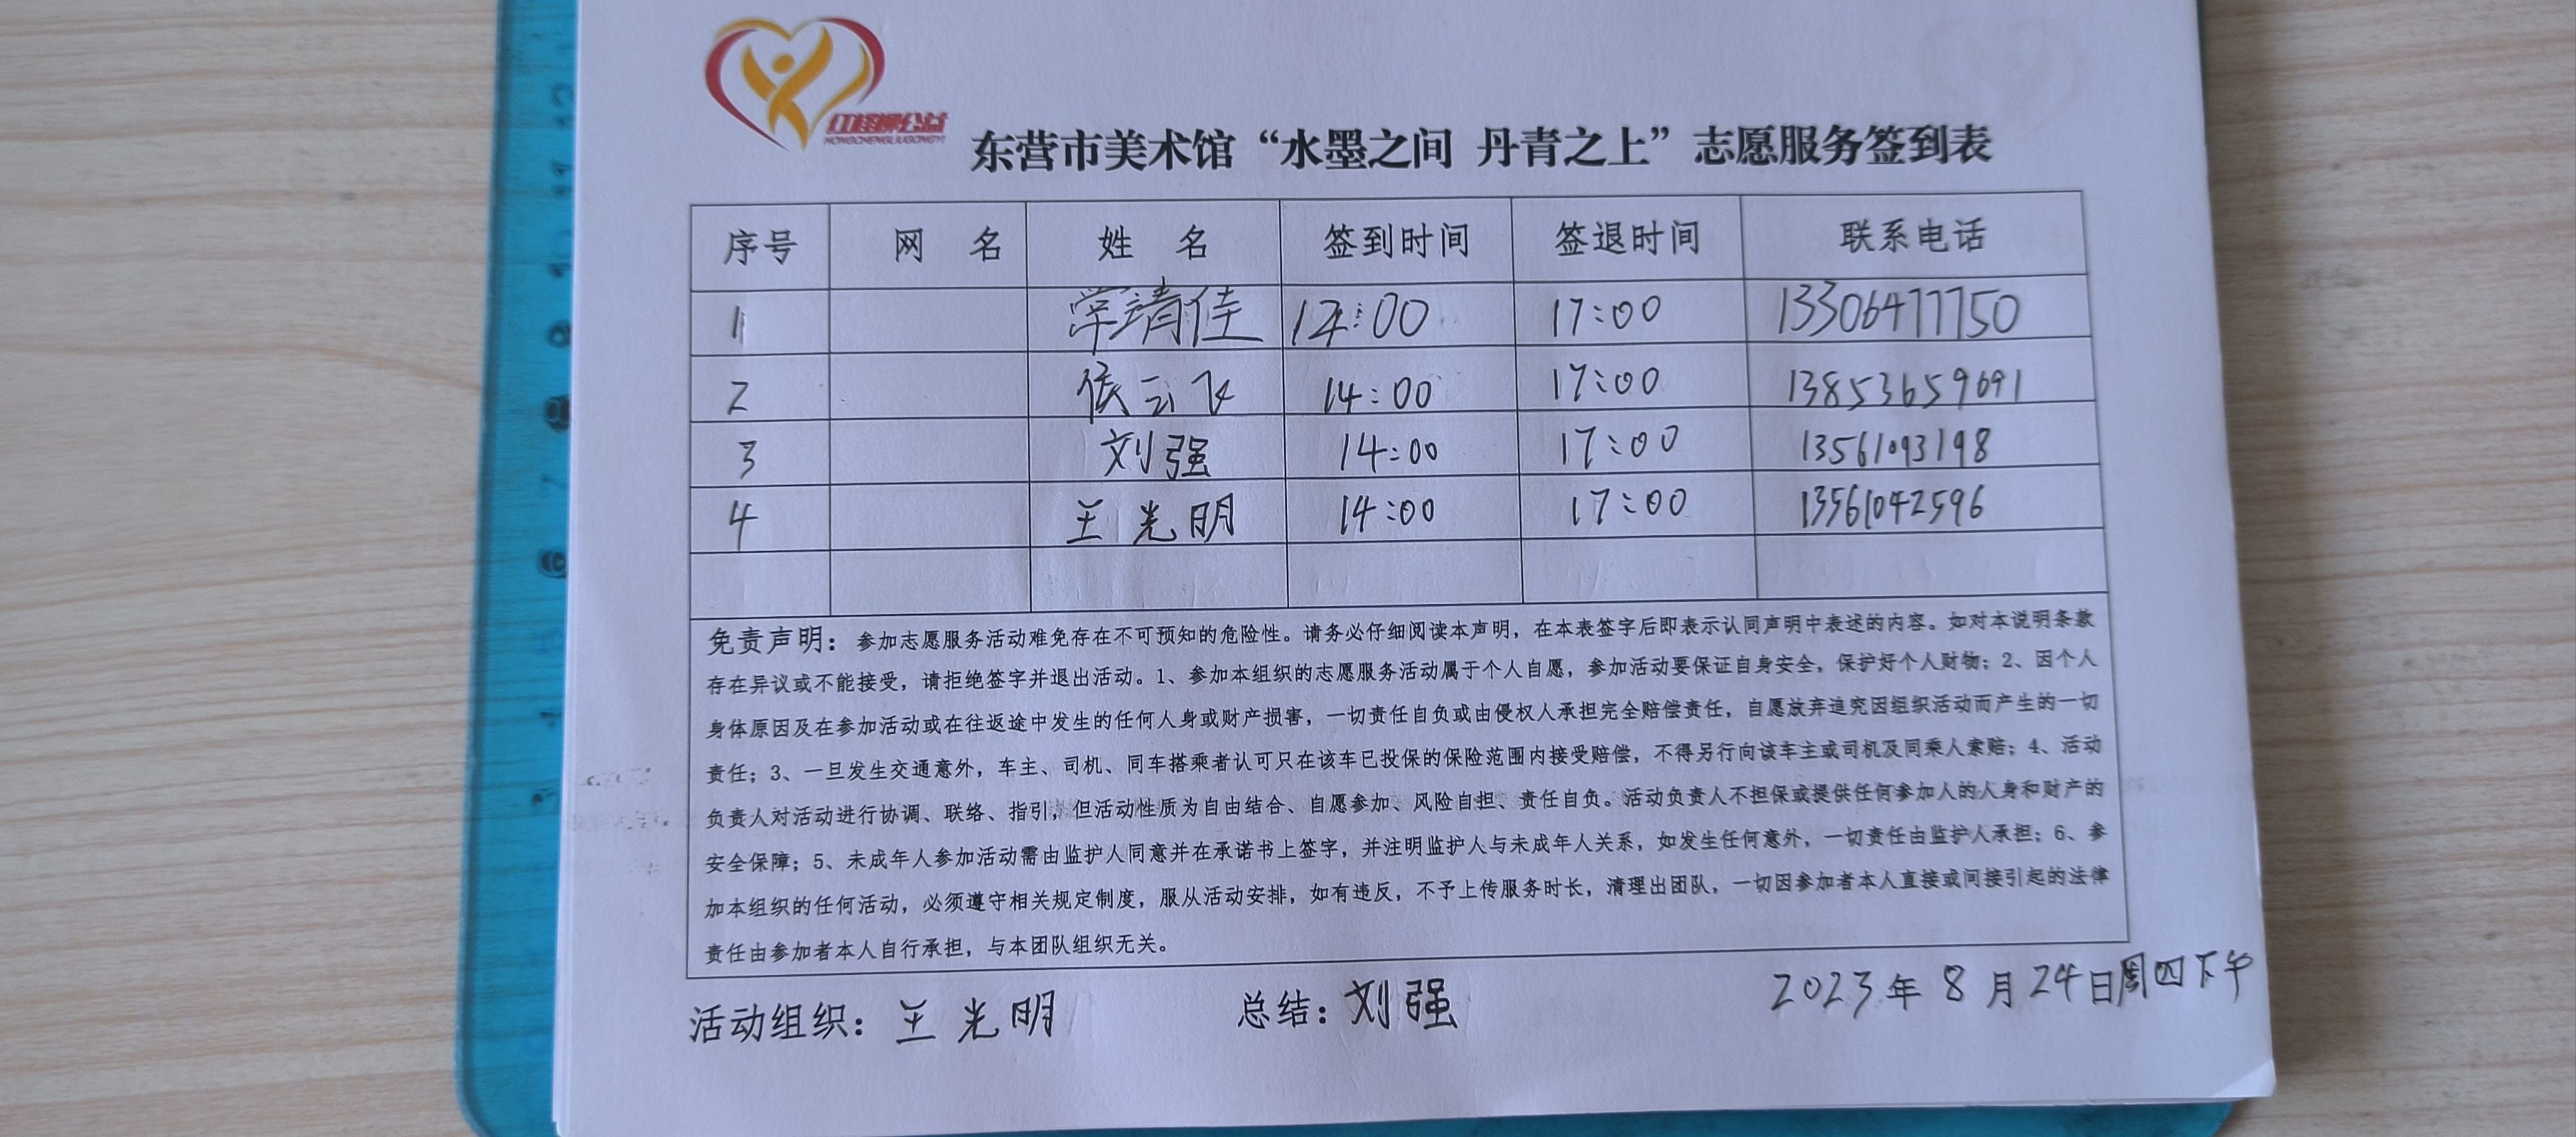 红柽柳公益
HONGCHENGLIUGONGYI
东营市美术馆“水墨之间 丹青之上”志愿服务签到表
序号 网 名 姓 名 签到时间 签退时间 联系电话
1 靖佳 14:00 17:00 13306477750
2 侯云飞 14:00 17:00 13853659691
3 刘强 14:00 17:00 13561093198
4 王光明 14:00 17:00 13561042596
免责声明：参加志愿服务活动难免存在不可预知的危险性。请务必仔细阅读本声明，在本表签字后即表示认同声明中表述的内容。如对本说明条款
存在异议或不能接受，请拒绝签字并退出活动。1、参加本组织的志愿服务活动属于个人自愿，参加活动要保证自身安全，保护好个人财物；2、因个人
身体原因及在参加活动或在往返途中发生的任何人身或财产损害，一切责任自负或由侵权人承担完全赔偿责任，自愿放弃追究因组织活动而产生的一切
责任；3、一旦发生交通意外，车主、司机、同车搭乘者认可只在该车已投保的保险范围内接受赔偿，不得另行向该车主或司机及同乘人索赔；4、活动
负责人对活动进行协调、联络、指引，但活动性质为自由结合、自愿参加、风险自担、责任自负。活动负责人不担保或提供任何参加人的人身和财产的
安全保障；5、未成年人参加活动需由监护人同意并在承诺书上签字，并注明监护人与未成年人关系，如发生任何意外，一切责任由监护人承担；6、参
加本组织的任何活动，必须遵守相关规定制度，服从活动安排，如有违反，不予上传服务时长，清理出团队，一切因参加者本人直接或间接引起的法律
责任由参加者本人自行承担，与本团队组织无关。
活动组织：王光明 总结：刘强 2023年8月24日周四下午